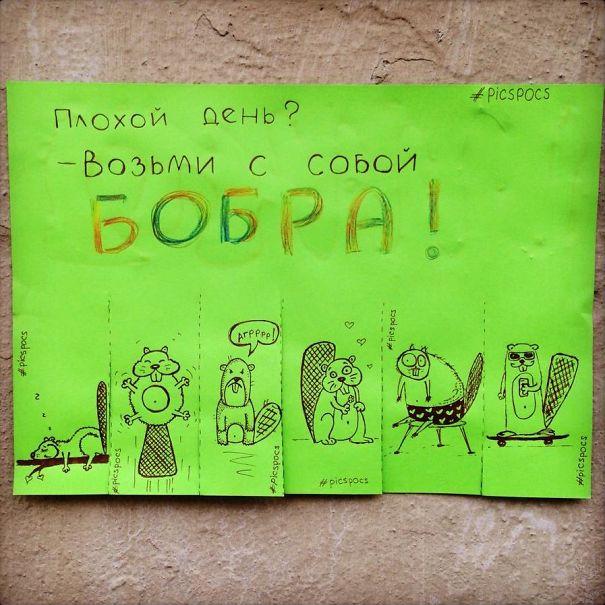 #picspocs
Плохой день?
-Возьми с собой
БОБРА!
#picspocs
#picspocs
Агрррр!
#picspocs
#picspocs
#picspocs
#picspocs